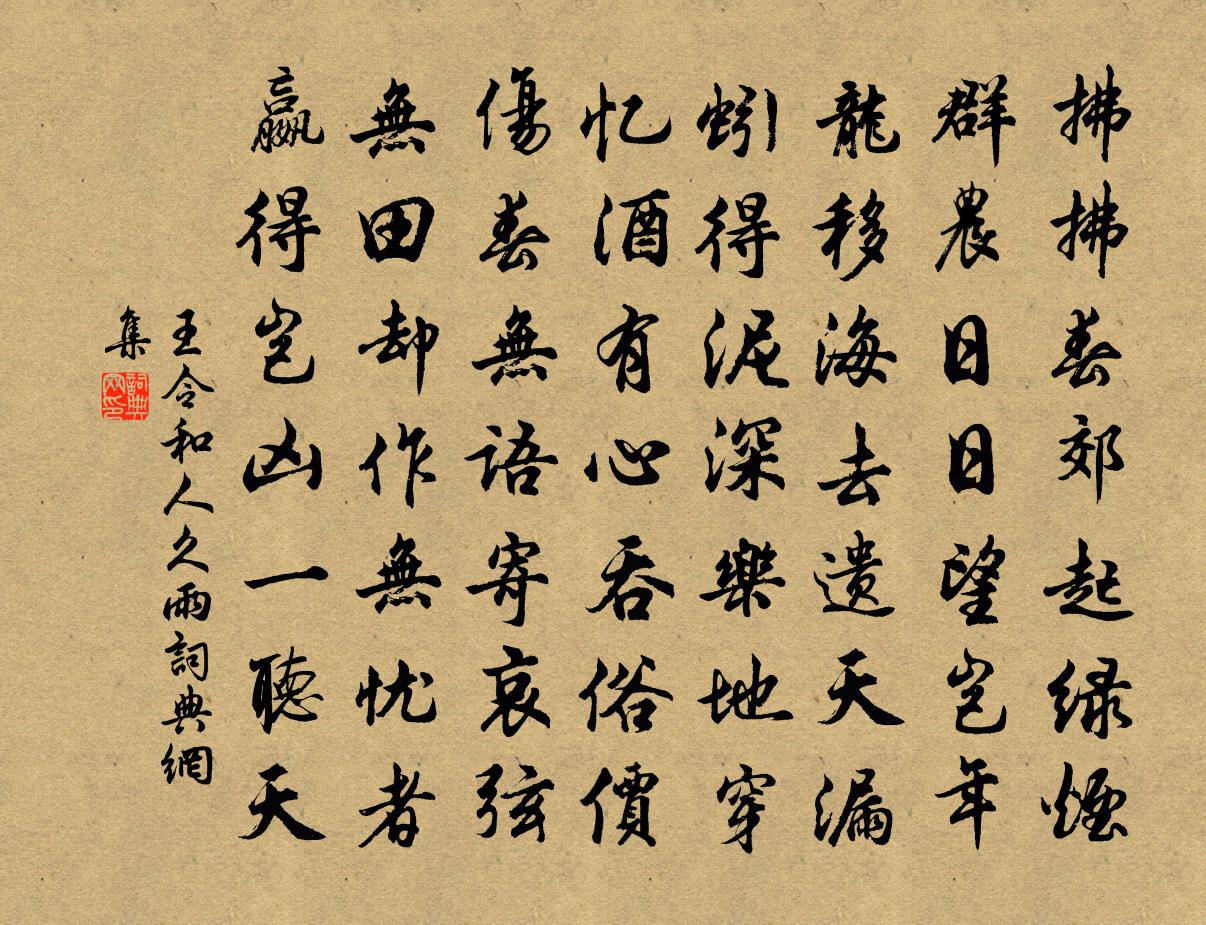 拂拂春郊起绿煙
群農日日望岂年
龍移海去遗天漏
蚓得泥深樂地穿
忆酒有心吞俗價
傷春無語寄哀弦
無田却作無忧者
嬴得岂凶一聽天
王令和人久雨詞典網
集
詞典網印